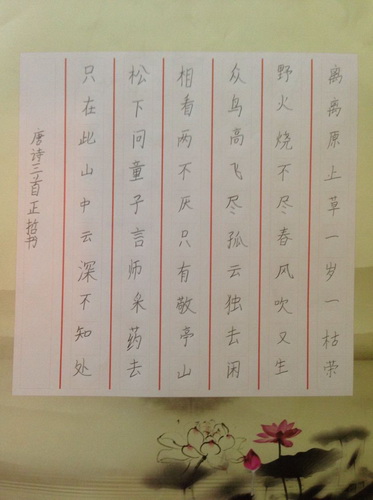 离离原上草一岁一枯荣
野火烧不尽春风吹又生
众鸟高飞尽孤云独去闲
相看两不厌只有敬亭山
松下问童子言师采药去
只在此山中云深不知处
唐诗三首正哲书